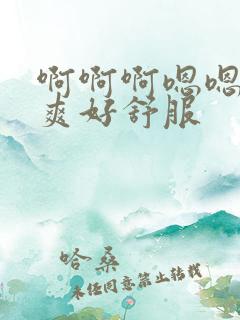 啊啊啊嗯嗯
爽好舒服
哈桑
未经同意禁止转载